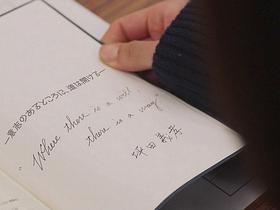 ―意志のあるところに、道は開ける―
"Where there is a will
there is a way"
坪田義孝